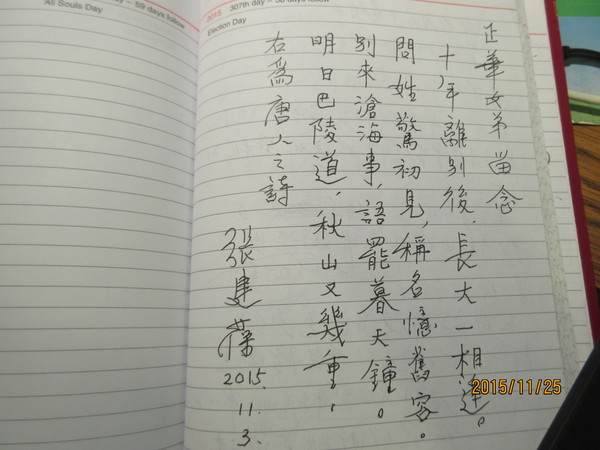 59 days follow
All Souls Day
2015 307th day – 58 days follow
Election Day
正華女弟留念
十年離別後,長大一相逢。
問姓驚初見,稱名憶舊容。
別來滄海事,語罷暮天鐘。
明日巴陵道,秋山又幾重.
右爲唐人之詩
張建葆
2015.
11.
3.
2015/11/25